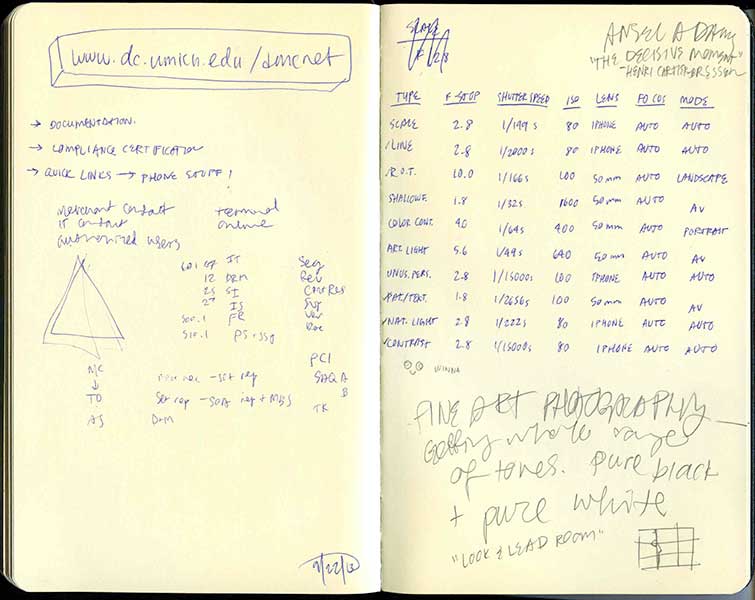 www.dc.umich.edu/dmcnet
→ DOCUMENTATION.
→ COMPLIANCE CERTIFICATION
→ QUICK LINKS → PHONE STUFF!
merchant contact terminal
IT contact online
authorized users
601.07 IT Seq
12 DRM Rev
25 SI
27 IS Sup
Sec.1 FR Ver
Sec.1 Doc
PCI
MC set rep SAQ A
↓
TO Set rep B
TK
AS
9/22/10
SCALE
F 2.8
ANSEL ADAMS
"THE DECISIVE MOMENT"
-HENRI CARTIER-BRESSON
TYPE F-STOP SHUTTERSPEED ISO LENS FOCUS MODE
SCALE 2.8 1/199 s 80 IPHONE AUTO AUTO
LINE 2.8 1/2000s 80 IPHONE AUTO AUTO
R.O.T. 10.0 1/166s 100 50mm AUTO LANDSCAPE
SHALLOW. 1.8 1/32s 1600 50mm AUTO AV
COLOR CONT. 4.0 1/64s 400 50mm AUTO PORTRAIT
ART. LIGHT 5.6 1/49s 640 50mm AUTO AV
UNUS. PERS. 2.8 1/15000s 100 IPHONE AUTO AUTO
PAT/TEXT. 1.8 1/2656s 100 50mm AUTO AV
NAT. LIGHT 2.8 1/222s 80 IPHONE AUTO AUTO
CONTRAST 2.8 1/15000s 80 IPHONE AUTO AUTO
WINNA
FINE ART PHOTOGRAPHY —
Getting whole range
of tones. pure black
+ pure white
"LOOK & LEAD ROOM"